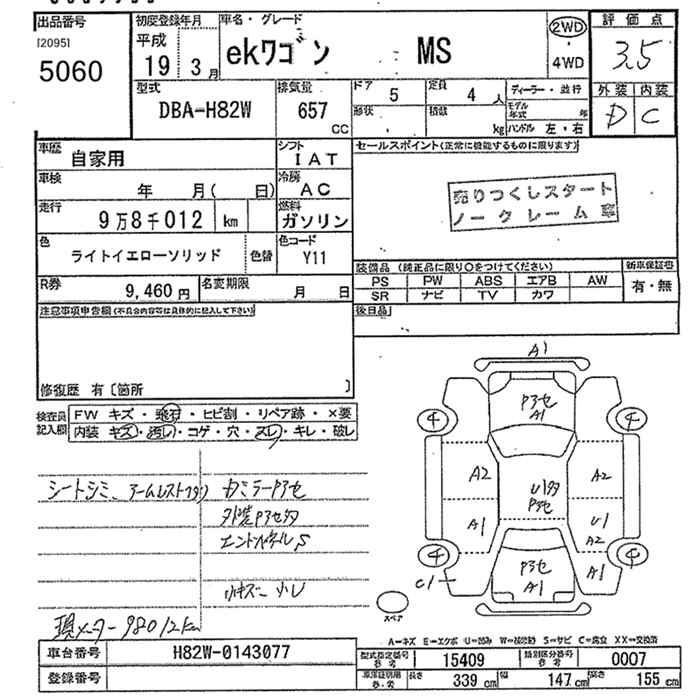 出品番号
I20951
5060
初度登録年月
平成
19 3月
車名・グレード
ekワゴン MS
2WD
・
4WD
評価点
3.5
外装 内装
D C
型式
DBA-H82W
排気量
657
CC
ドア
5
定員
4人
形状
積数
kg
ディーラー・並行
モデル年式 年
ハンドル 左・右
車歴
自家用
シフト
IAT
車検
年 月( 日)
冷房
AC
走行
9万8千012 km
燃料
ガソリン
色
ライトイエローソリッド
色替
色コード
Y11
R券
9,460円
名変期限
月 日
セールスポイント(正常に機能するものに限ります)
売りつくしスタート
ノークレーム
装備品 (純正品に限り○をつけてください)
新車保証書
PS PW ABS エアB AW
SR ナビ TV カワ
有・無
注意事項申告欄(不具合内容等は具体的に記入して下さい)
後日品
修復歴 有〔箇所 〕
検査員
記入欄
FW キズ・飛石・ヒビ割・リペア跡・×要
内装 キズ・汚レ・コゲ・穴・スレ・キレ・破レ
シートシミ、アームレスト
カミラーアセ
エンドパネルS
小キズ 小U
現メーター98012km
A1
アセ
A1
4
4
A2
U
アセ
A2
A1
U1
A2
4
4
アセ
A1
C1
A1
スペア
A=キズ E=エクボ U=凹み W=補修跡 S=サビ C=腐食 XX=交換済
車台番号
H82W-0143077
登録番号
型式指定番号
参考
15409
類別区分番号
参考
0007
車庫証明用
参考
長さ
339cm
幅
147cm
高さ
155cm